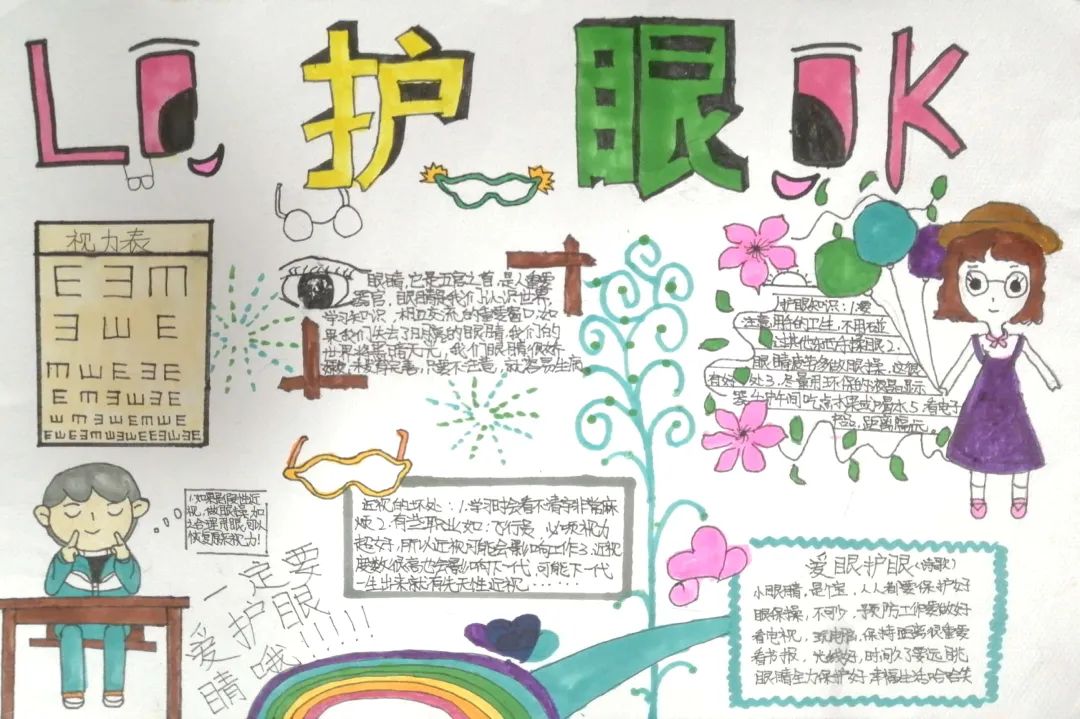 LO 护眼 OK
视力表
E E M
E W E
M W E E E
眼睛,它是五官之首,是人重要
器官,眼睛是我们认识世界,
学习知识、相互交流的重要窗口,如
果我们失去了明亮的眼睛,我们的
世界将暗无
就容易生病
护眼知识:1.要
注意用手的卫生,不用碰
过其他东西的手揉眼2.
眼睛疲劳多做眼操,这很
有好处3.尽量用环保的液晶显示
器4.中午间吃点水果或喝水5.看电子
产品,距离隔远
1.如果是假性近
视,做眼操,加
上合理用眼,可以
恢复原来视力!
一定要
爱护眼
睛哦!!!!!
近视的坏处:1.学习时会看不清字非常麻
烦2.有些职业如:飞行员,必须视力
超好,所以近视可能会影响工作3.近视
度数很高也会影响下一代,可能下一代
一生出来就有先天性近视.......
爱眼护眼(诗歌)
小眼睛,是个宝,人人都要保护好
眼保操,不可少,预防工作要做好
看电视,玩电脑,保持距离很重要
看书报,光线好,时间久了要远眺
眼睛全力保护好,幸福生活哈哈笑